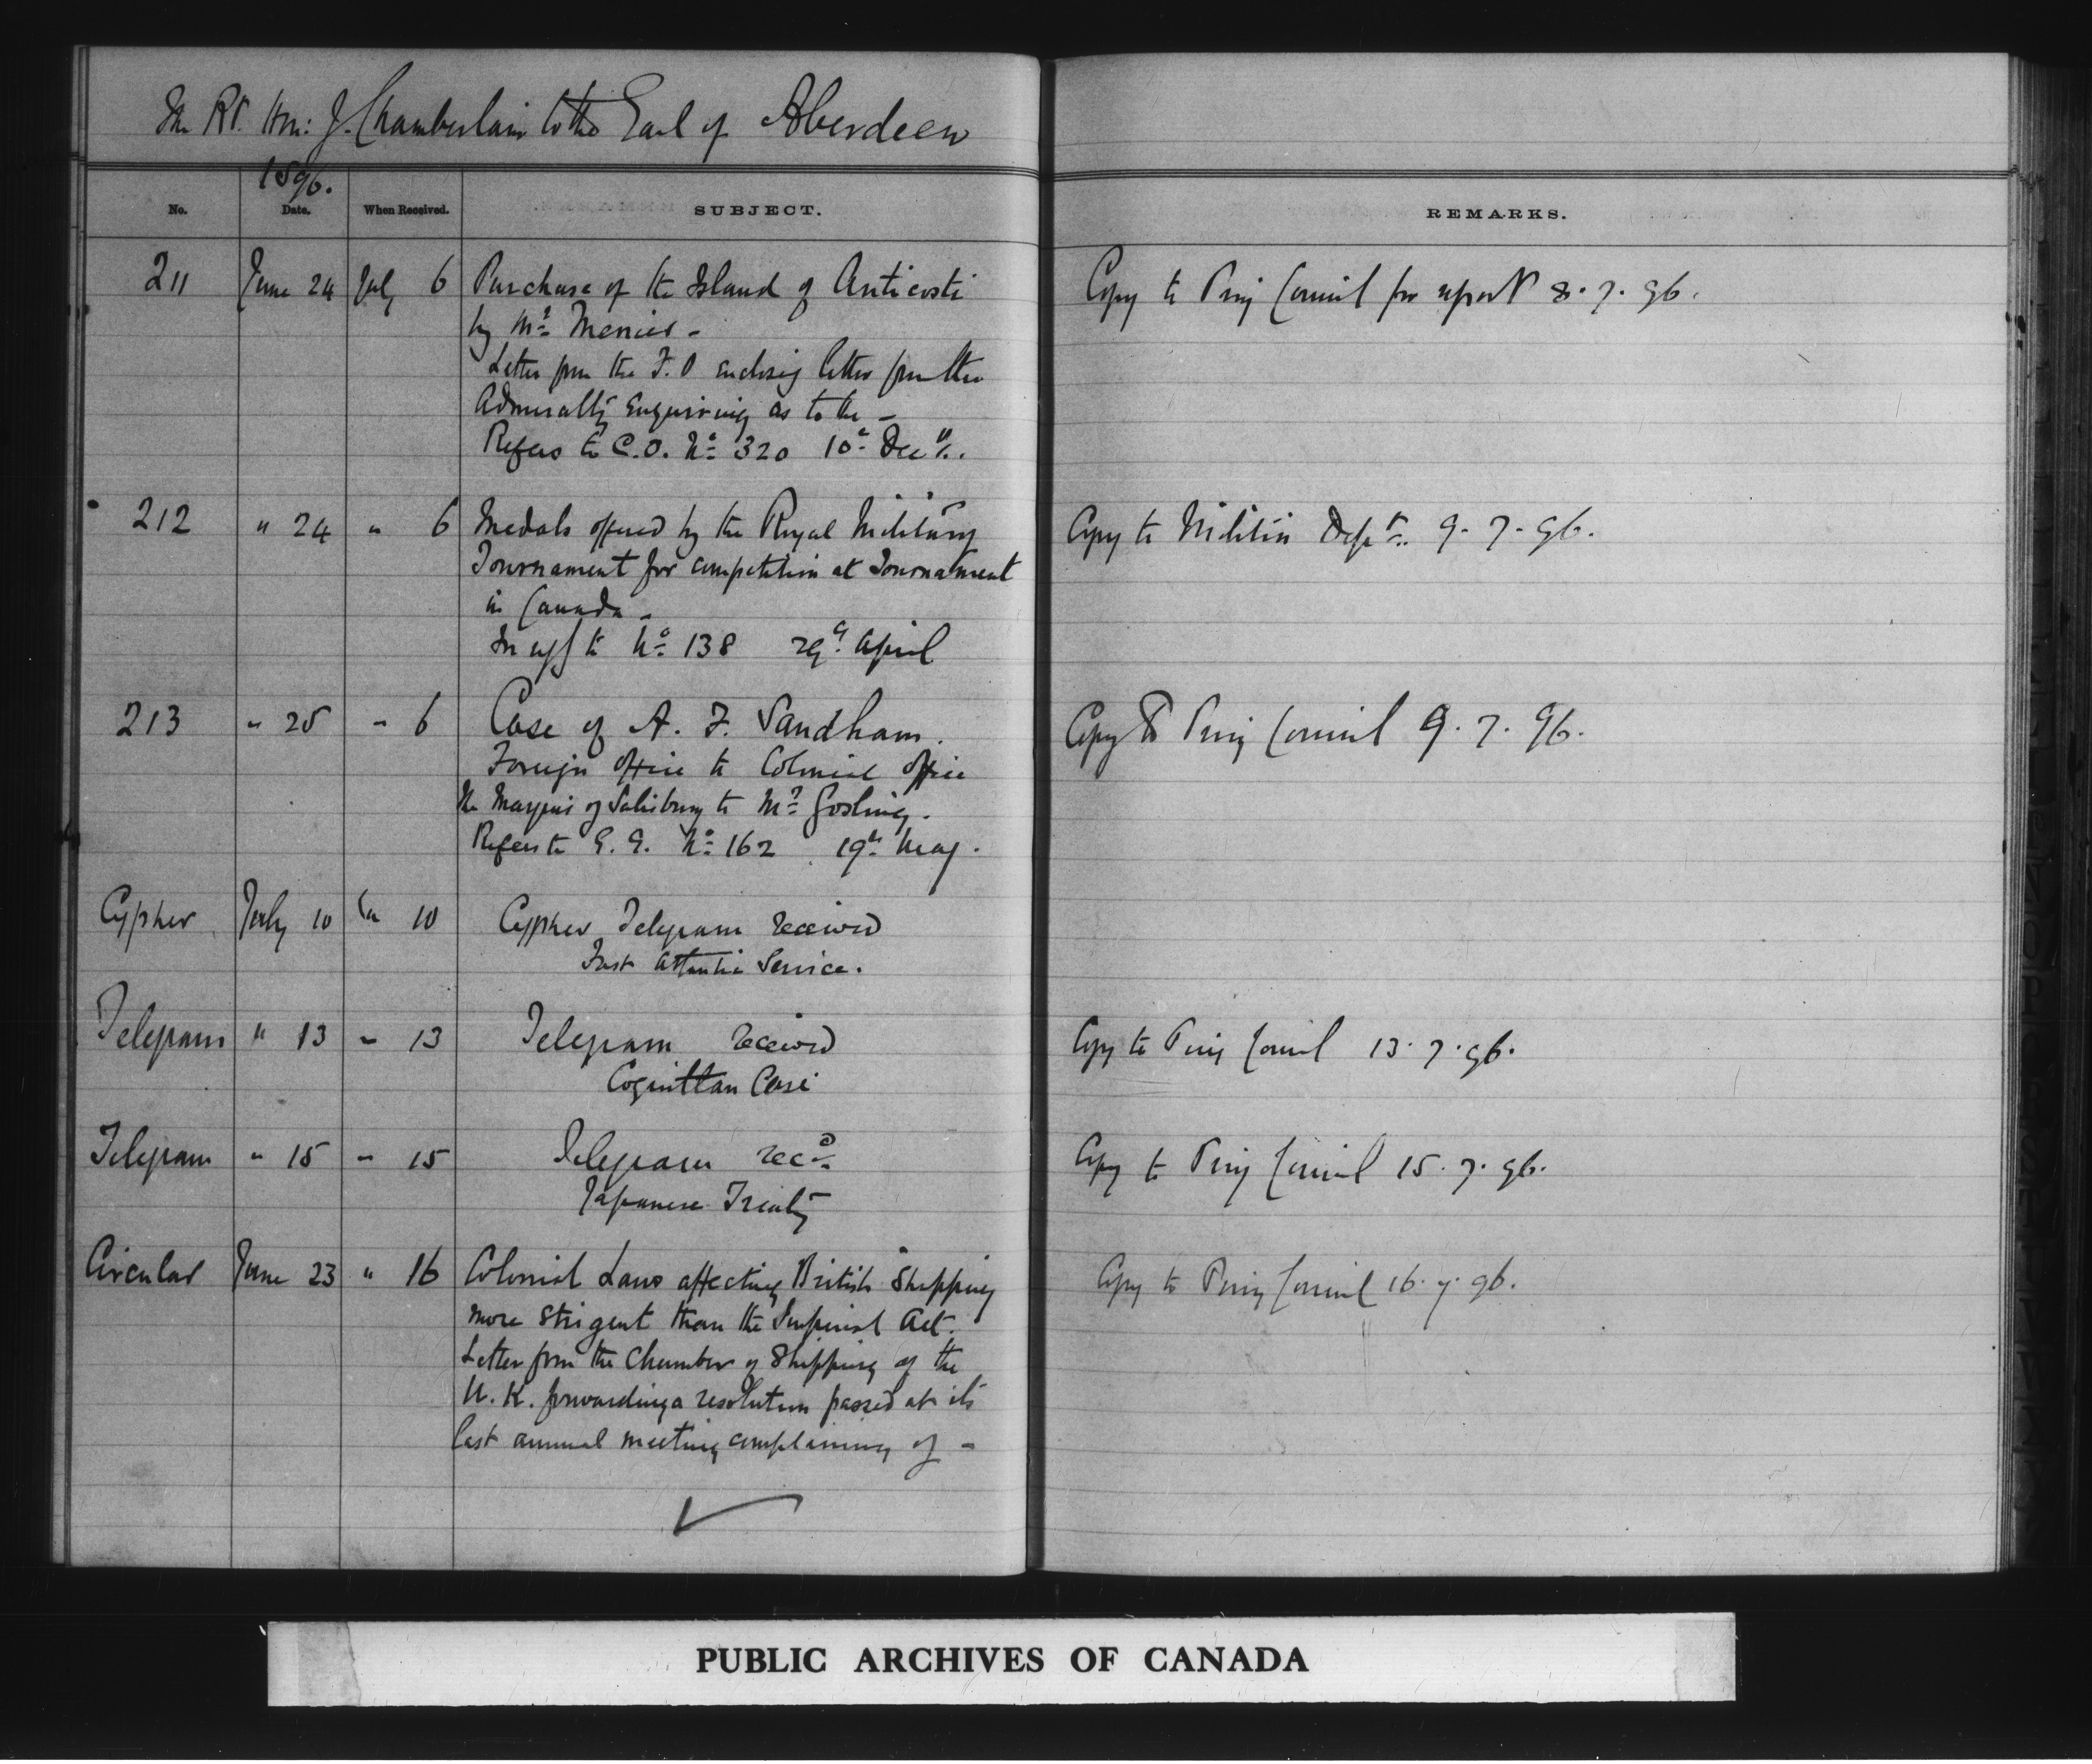 The Rt. Hon: J. Chamberlain to the Earl of Aberdeen
1896.
No. Date. When Received. SUBJECT. REMARKS.
211 June 24 July 6 Purchase of the Island of Anticosti Copy to Privy Council for report 8.7.96.
by Mr Menier -
Letter from the F.O enclosing letter from the
Admiralty enquiring as to the -
Refers to C.O. No 320 10th Decr.
212 " 24 " 6 Medals offered by the Royal Military Copy to Militia Dept. 9.7.96.
Tournament for competition at Tournament
in Canada -
In reply to No 138 29th April
213 " 25 " 6 Case of A. F. Sandham. Copy to Privy Council 9.7.96.
Foreign Office to Colonial Office
The Marquis of Salisbury to Mr Gosling.
Refers to G.G. No 162 19th May.
Cypher July 10 " 10 Cypher Telegram received
Fast Atlantic Service.
Telegram " 13 " 13 Telegram received Copy to Privy Council 13.7.96.
Coquitlan Case
Telegram " 15 " 15 Telegram recd. Copy to Privy Council 15.7.96.
Japanese Treaty
Circular June 23 " 16 Colonial Laws affecting British Shipping Copy to Privy Council 16.7.96.
more strigent than the Imperial Act.
Letter from the Chamber of Shipping of the
U.K. forwarding a resolution passed at its
last annual meeting complaining of -
PUBLIC ARCHIVES OF CANADA